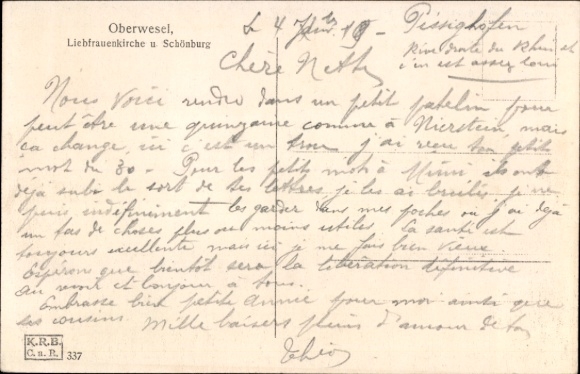 Oberwesel,
Liebfrauenkirche u. Schönburg
Le 4 19 - Pissighofen
Rive droite du Rhin et
c'en est assez loin
Chère
Nous voici rendre dans un petit patelin pour
peut être une quinzaine comme à Nierstein, mais
ça change, ici c'est un trou j'ai reçu ton petit
mot du 30 - Pour les petits mots à Mimi ils ont
déjà subi le sort de tes lettres je les ai brulés je ne
puis indéfiniment les garder dans mes poches ou j'ai déjà
un tas de choses plus ou moins utiles, la santé est
toujours excellente mais ici je me fais bien vieux.
Espérons que bientôt sera la libération définitive
Au revoir et bonjour à tous.
Embrasse bien petite Annie pour moi ainsi que
ses cousins. Mille baisers pleins d'amour de ton
K.R.B.
C. a. R. 337